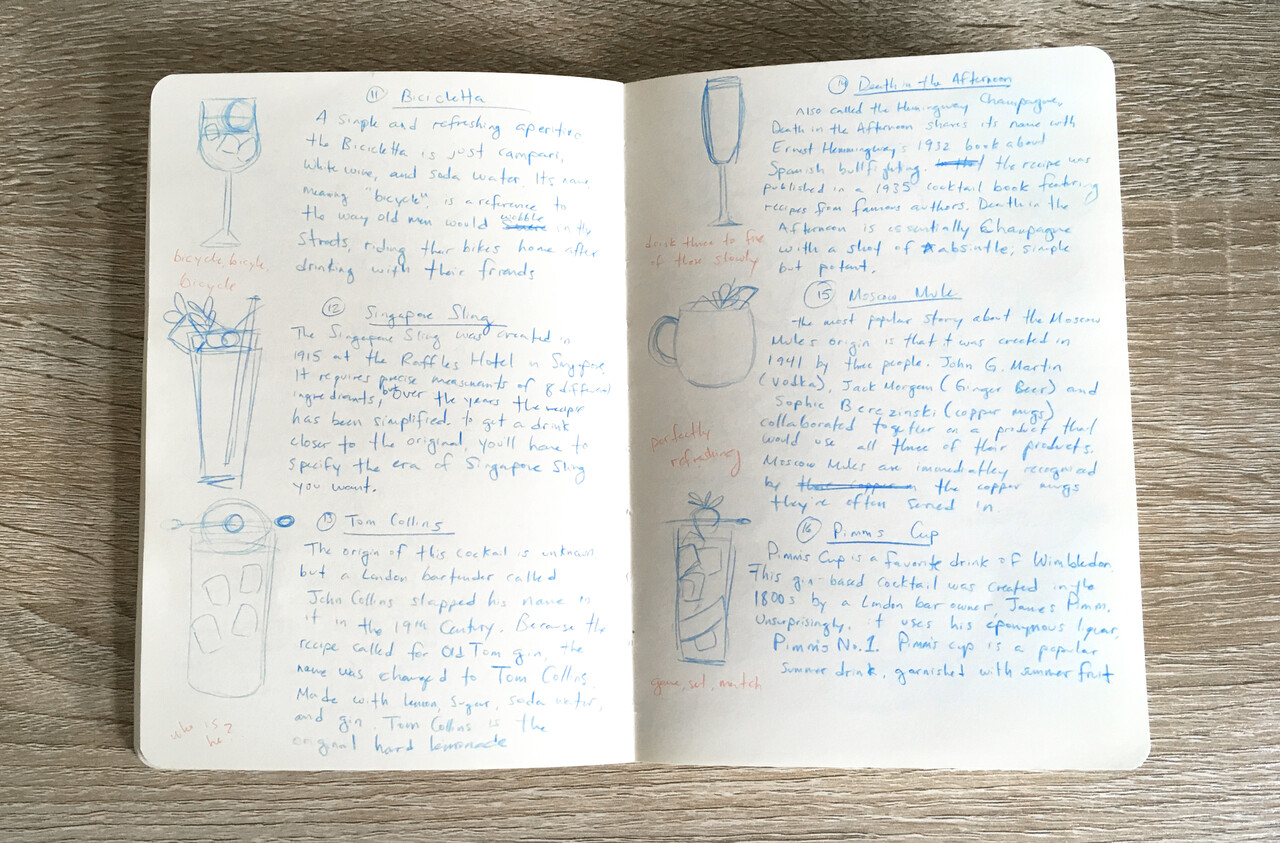 11 Bicicletta
A simple and refreshing aperitivo
the Bicicletta is just campari,
white wine, and soda water. Its name,
meaning "bicycle", is a reference to
the way old men would wobble in the
streets, riding their bikes home after
drinking with their friends
bicycle, bicycle,
bicycle
12 Singapore Sling
The Singapore Sling was created in
1915 at the Raffles Hotel in Singapore.
It requires precise measurments of 8 different
ingrediants, but over the years the recipe
has been simplified. to get a drink
closer to the original, you'll have to
specify the era of Singapore Sling
you want.
13 Tom Collins
The origin of this cocktail is unknown
but a London bartender called
John Collins slapped his name on
it in the 19th Century. Because the
recipe called for Old Tom gin, the
name was changed to Tom Collins.
Made with lemon, sugar, soda water,
and gin. Tom Collins is the
original hard lemonade
who is
he?
14 Death in the Afternoon
Also called the Hemingway Champagne,
Death in the Afternoon shares its name with
Ernest Hemmingway's 1932 book about
Spanish bullfighting. the recipe was
published in a 1935 cocktail book featuring
recipes from famous authors. Death in the
Afternoon is essentially Champagne
with a shot of absinthe, simple
but potent.
drink three to five
of these slowly
15 Moscow Mule
the most popular story about the Moscow
Mules origin is that it was created in
1941 by three people. John G. Martin
(vodka), Jack Morgan (Ginger Beer) and
Sophie Berezinski (copper mugs)
collaborated together on a product that
would use all three of their products.
Moscow Mules are immediatley recognised
by the copper mugs
they're often served in.
perfectly
refreshing
16 Pimms Cup
Pimm's Cup is a favorite drink of Wimbledon.
This gin-based cocktail was created in the
1800s by a London bar owner, James Pimm.
Unsurprisingly, it uses his eponymous liquor,
Pimm's No.1. Pimm's cup is a popular
summer drink, garnished with summer fruit
game, set, match